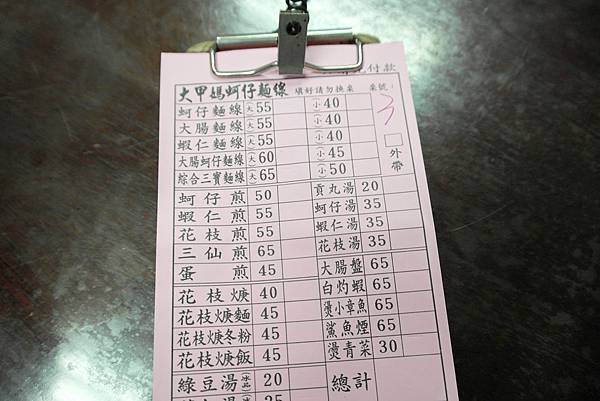 付款
大甲媽蚵仔麵線 填好請勿換桌 桌號:
3
蚵仔麵線 大 55 小 40
大腸麵線 大 55 小 40
蝦仁麵線 大 55 小 40
大腸蚵仔麵線 大 60 小 45
綜合三寶麵線 大 65 小 50
外帶
蚵仔煎 50 貢丸湯 20
蝦仁煎 55 蚵仔湯 35
花枝煎 55 蝦仁湯 35
三仙煎 65 花枝湯 35
蛋煎 45 大腸盤 65
花枝焿 40 白灼蝦 65
花枝焿麵 45 燙小章魚 65
花枝焿冬粉 45 鯊魚煙 65
花枝焿飯 45 燙青菜 30
綠豆湯 20 總計